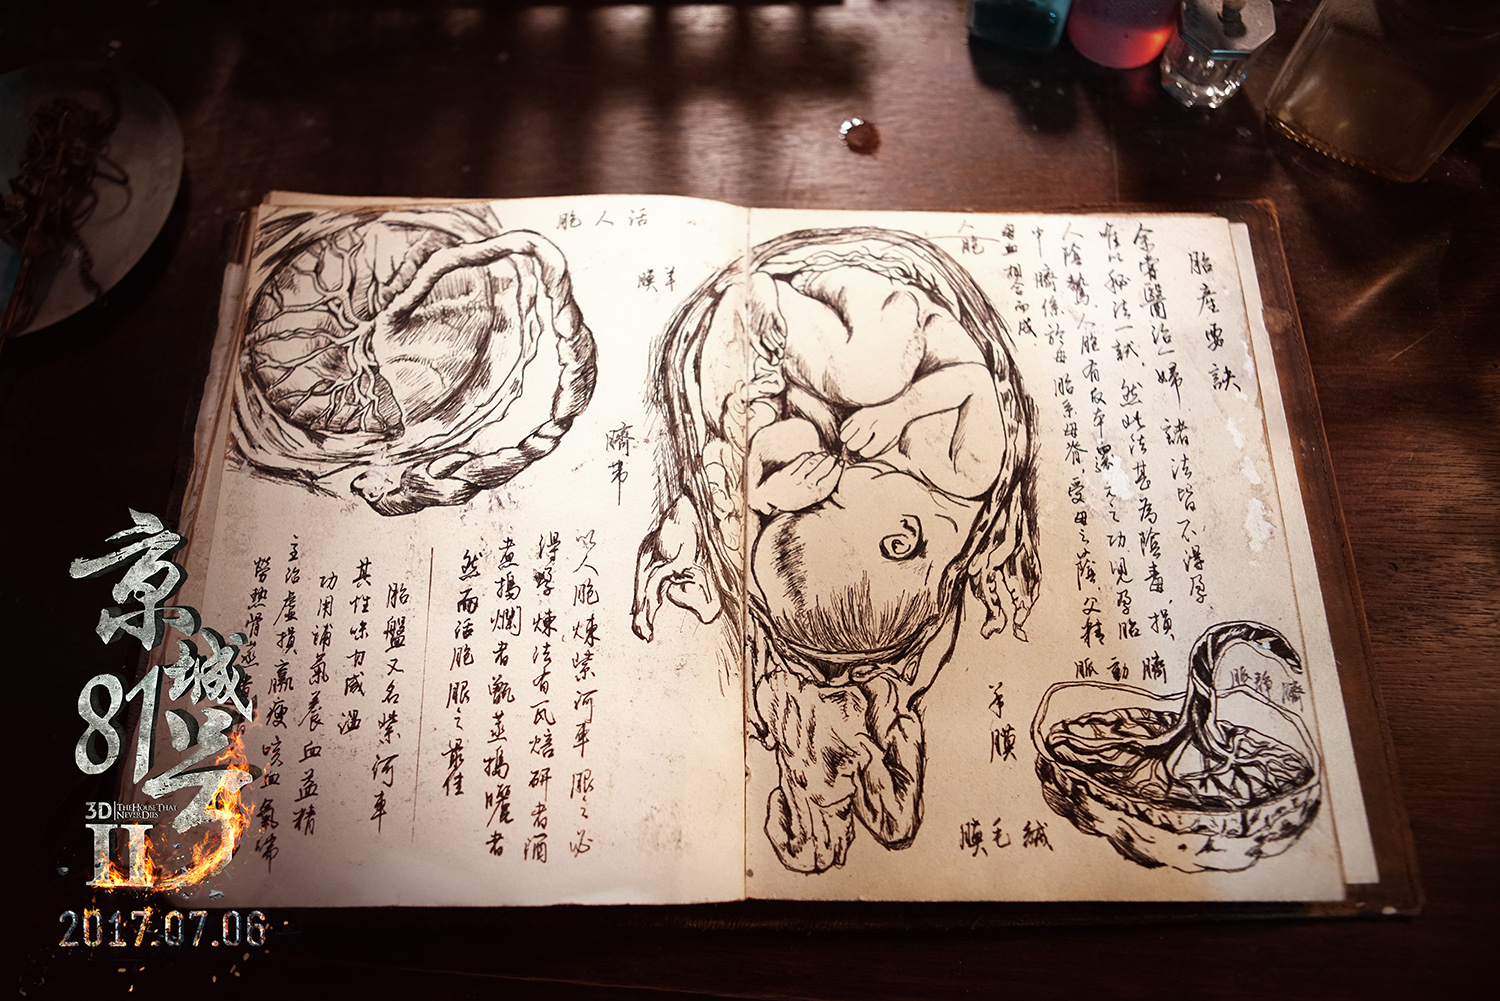 胎產要訣
余嘗醫治一婦 諸法皆不得孕
唯以秘法一試，然此法甚為陰毒，損
人陰騭，人胞有返本還元之功 兒孕胎
中 臍係於母 胎系母脊，受母之蔭 父精
母血相合而成
臍
動
脈
人胞
羊膜
臍靜脈
絨毛膜
活人胞
羊膜
臍帶
以人胞煉紫河車 服之必
得孕 煉法有瓦焙研者酒
煮搗爛者甑蒸搗曬者
然而活胞服之最佳
胎盤又名紫河車
其性味甘咸溫
功用補氣養血益精
主治虛損羸瘦咳血氣喘
勞熱骨蒸
京城81号
3D THE HOUSE THAT NEVER DIES
II
2017.07.06